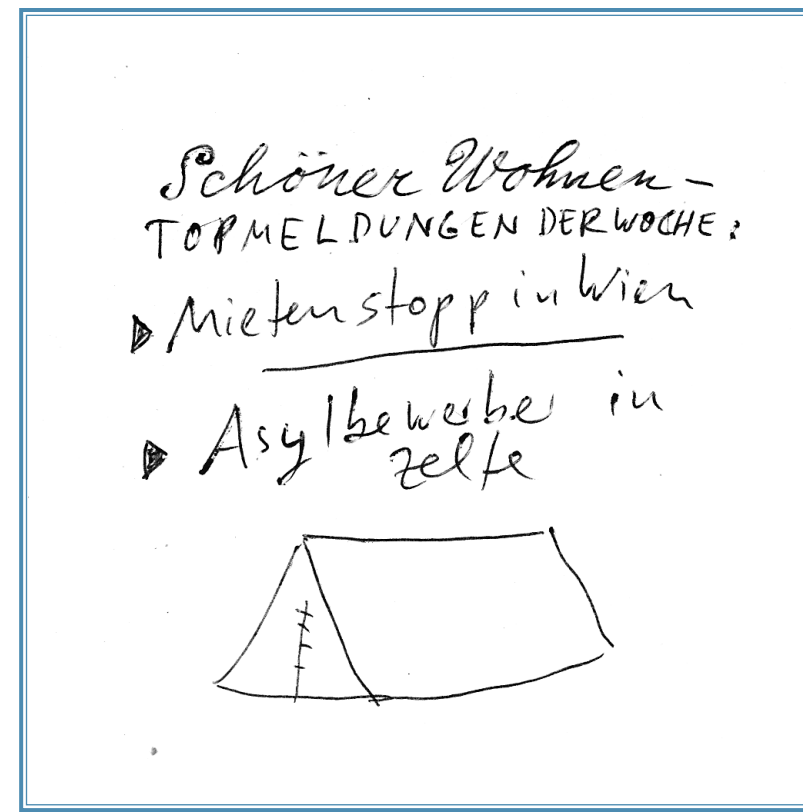 Schöner Wohnen -
TOPMELDUNGEN DER WOCHE:
Mietenstopp in Wien
Asylbewerber in
Zelte